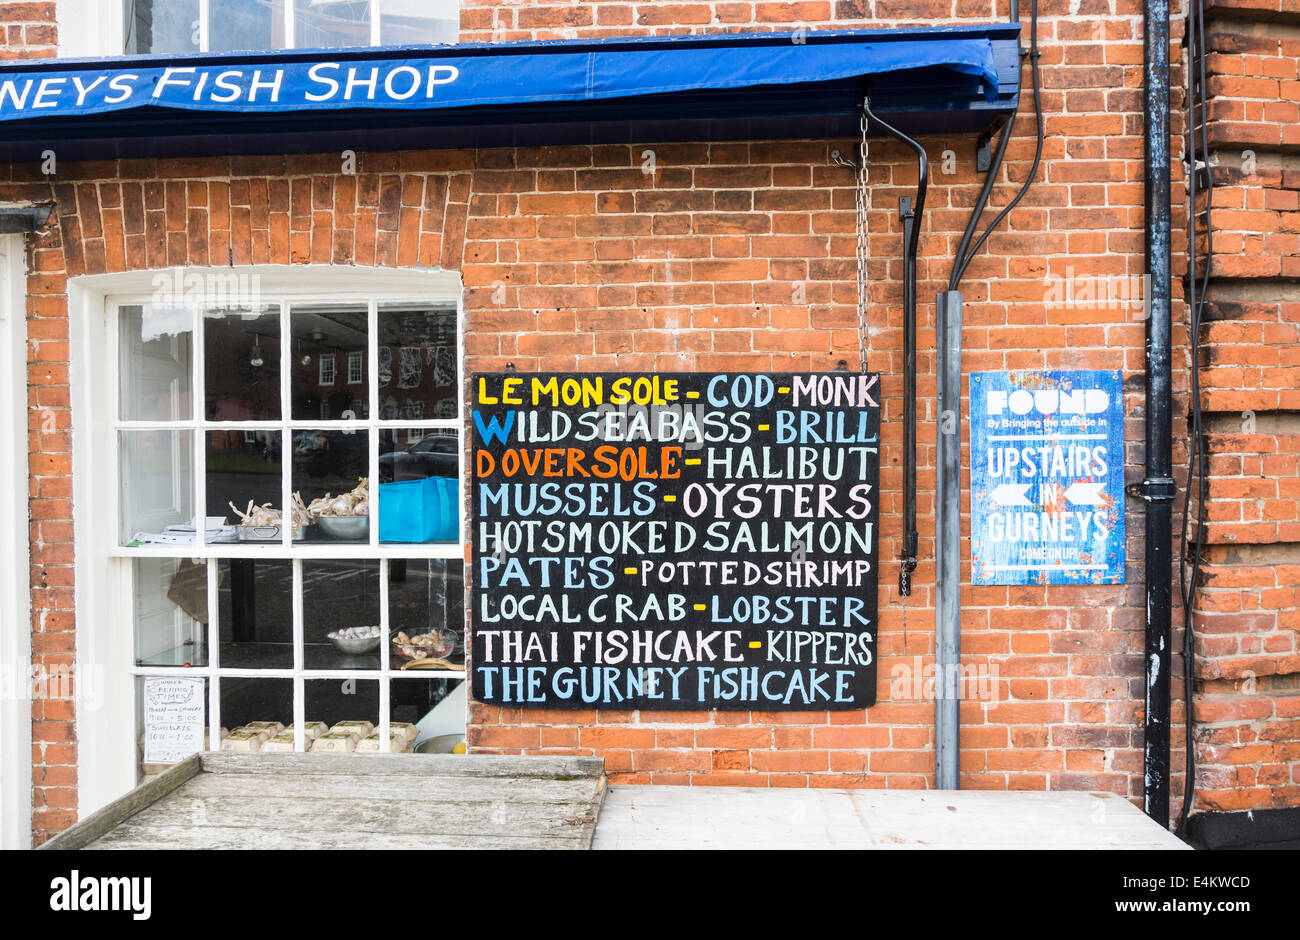 NEYS FISH SHOP
LEMON SOLE - COD - MONK
WILD SEABASS - BRILL
DOVER SOLE - HALIBUT
MUSSELS - OYSTERS
HOT SMOKED SALMON
PATES - POTTED SHRIMP
LOCAL CRAB - LOBSTER
THAI FISHCAKE - KIPPERS
THE GURNEY FISHCAKE
FOUND
By Bringing the outside in
UPSTAIRS
IN
GURNEYS
COME ON UP!
OPENING
TIMES
9:00 - 5:00
SUNDAYS
alamy
Image ID: E4KWCD
www.alamy.com